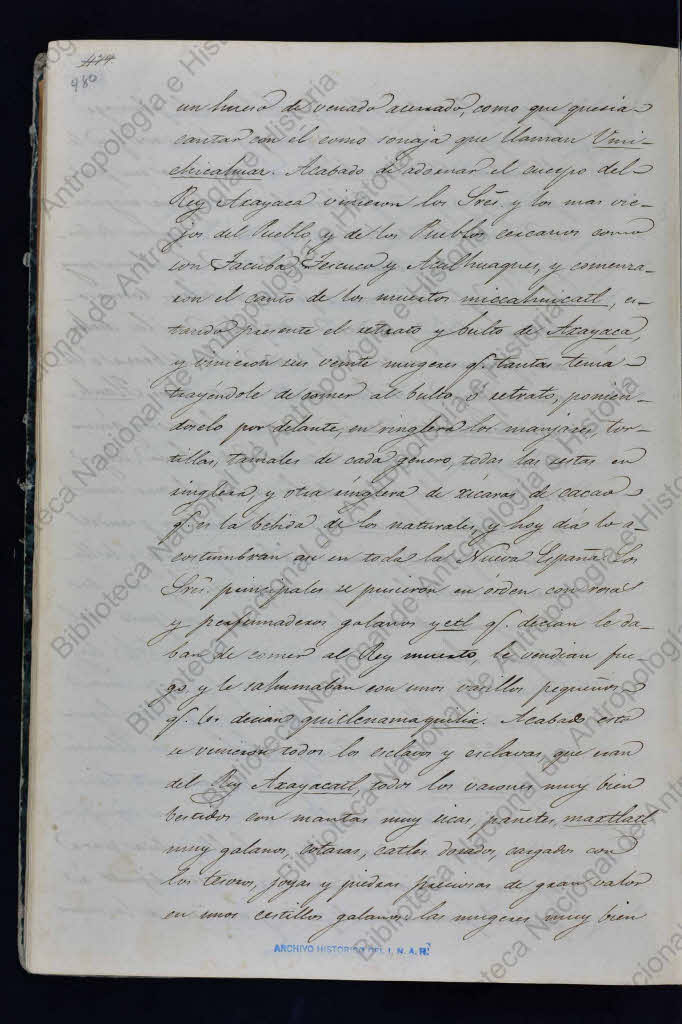 474
480
un hueso de venado aserrado, como que queria
cantar con él como sonaja que llaman Vmi-
chicahuaz. Acabado de adornar el cuerpo del
Rey Axayaca vinieron los Sres. y los mas vie-
jos del Pueblo, y de los Pueblos cercanos como
son Tacuba, Tescuco y Acalhuaques, y comenza-
ron el canto de los muertos miccahuicatl, es-
tando presente el retrato y bulto de Axayaca,
y vinieron sus veinte mugeres q. tantas tenia
trayéndole de comer al bulto, ó retrato, ponien-
doselo por delante, en ringlera los manjares, tor-
tillas, tamales de cada genero, todas las sestas en
ringlera, y otra ringlera de xícaras de cacao
q. es la bebida de los naturales, y hoy dia lo a-
costumbran asi en toda la Nueva España. Los
Sres. principales se pusieron en órden con rosas
y perfumaderos galanos yetl q. decian le da-
ban de comer al Rey muerto, le vendian fue-
go, y le sahumaban con unos vasillos pequeños
q. les decian quitlenamaquilia. Acabado esto
se vinieron todos los esclavos y esclavas que eran
del Rey Axayacatl, todos los varones muy bien
bestidos con mantas muy ricas, pañetes, maxtlatl
muy galanos, cotaras, catles dorados, cargados con
los tesoros, joyas y piedras preciosas de gran valor
en unos cestillos galanos: las mugeres muy bien
ARCHIVO HISTORICO DEL I. N. A. H.
Biblioteca Nacional de Antropología e Historia